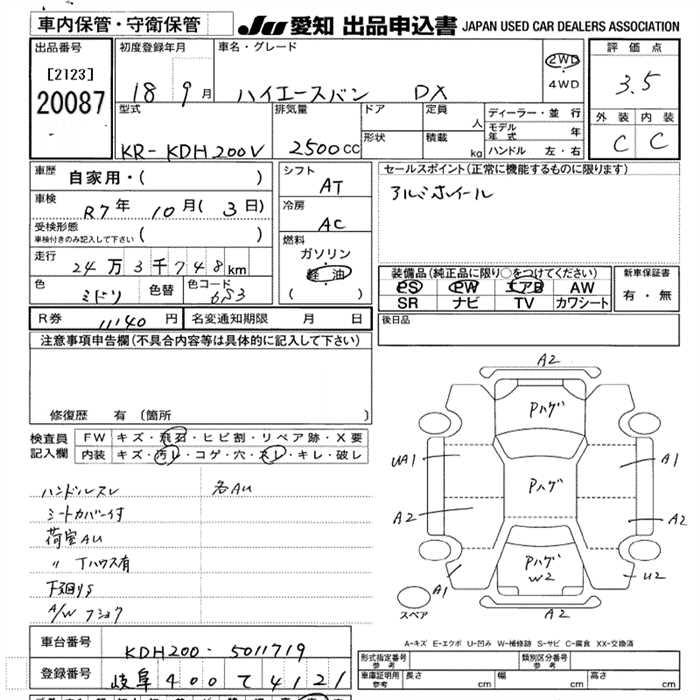 車内保管・守衛保管
JU 愛知 出品申込書 JAPAN USED CAR DEALERS ASSOCIATION
出品番号
[2123]
20087
初度登録年月
18 9月
車名・グレード
ハイエースバン DX
2WD
・
4WD
評価点
3.5
外装 内装
C C
型式
KR- KDH200V
排気量
2500cc
ドア
形状
定員 人
積載 kg
ディーラー・並行
モデル年式 年
ハンドル 左・右
車歴
自家用・( )
車検
R7年 10月( 3日)
受検形態
車検付きのみ記入して下さい ( )
走行
24万3千748km
色
ミドリ
色替
色コード
6S3
シフト
AT
冷房
AC
燃料
ガソリン
軽油
( )
セールスポイント(正常に機能するものに限ります)
アルミホイール
装備品(純正品に限り○をつけてください)
PS PW エアB AW
SR ナビ TV カワシート
新車保証書
有・無
R券 11140円
名変通知期限 月 日
後日品
注意事項申告欄(不具合内容等は具体的に記入して下さい)
修復歴 有 (箇所 )
検査員記入欄
FW キズ・飛石・ヒビ割・リペア跡・X要
内装 キズ・汚レ・コゲ・穴・スレ・キレ・破レ
ハンドルスレ 各AU
シートカバー付
荷室AU
〃 Tハウス有
下廻りS
A/W フショク
A2
Pハゲ
UA1
A1
Pハゲ
A2
A2
Pハゲ
W2
A1
U2
スペア
A2
A-キズ E-エクボ U-凹み W-補修跡 S-サビ C-腐食 XX-交換済
車台番号
KDH200-5011719
登録番号
岐阜400て4121
形式指定番号
参考
類別区分番号
参考
車庫証明用
参考
長さ cm 幅 cm 高さ cm